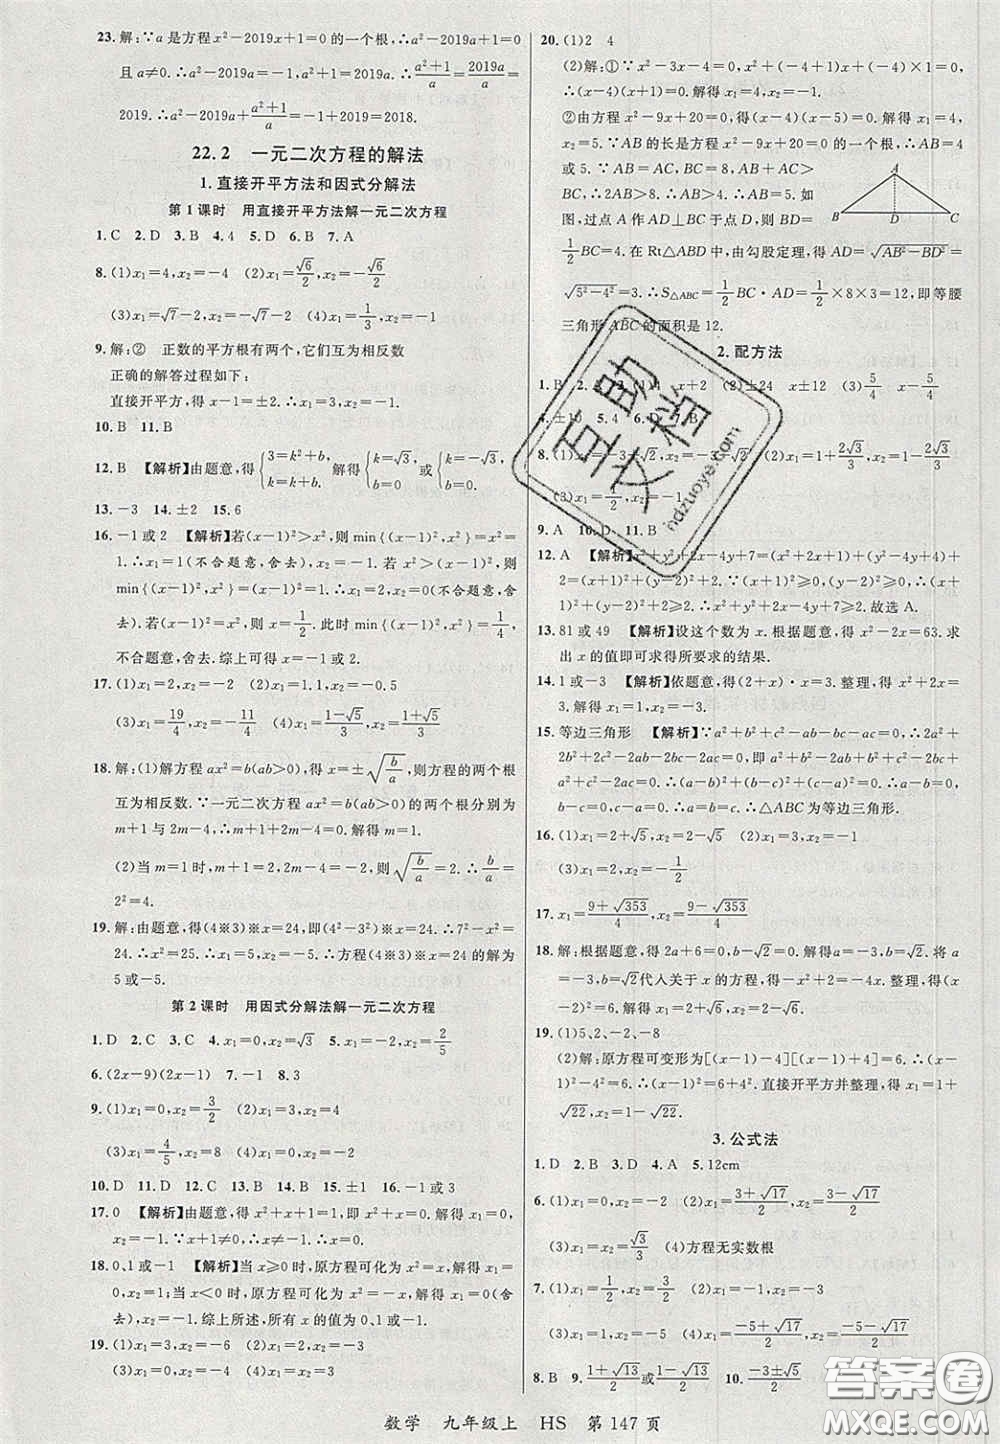 23. 解:∵a 是方程 x²－2019x＋1＝0 的一个根,∴a²－2019a＋1＝0
且 a≠0.∴a²－2019a＝－1,a²＋1＝2019a.∴(a²＋1)/a＝2019a/a＝
2019.∴a²－2019a＋(a²＋1)/a＝－1＋2019＝2018.
22.2 一元二次方程的解法
1. 直接开平方法和因式分解法
第 1 课时 用直接开平方法解一元二次方程
1. C 2. D 3. B 4. 4 5. D 6. B 7. A
8. (1)x₁＝4,x₂＝－4 (2)x₁＝√6/2,x₂＝－√6/2
(3)x₁＝√7－2,x₂＝－√7－2 (4)x₁＝1/3,x₂＝－1/3
9. 解:② 正数的平方根有两个,它们互为相反数
正确的解答过程如下:
直接开平方,得 x－1＝±2.∴x₁＝3,x₂＝－1.
10. B 11. B
12. B 【解析】由题意,得{3＝k²＋b, b＝k. 解得{k＝√3, b＝√3 或{k＝－√3, b＝－√3.
13. －3 14. ±2 15. 6
16. －1 或 2 【解析】若(x－1)²＞x²,则 min{(x－1)²,x²}＝x²＝
1.∴x₁＝1(不合题意,舍去),x₂＝－1.若(x－1)²＜x²,则
min{(x－1)²,x²}＝(x－1)²＝1.∴x₁＝2,x₂＝0(不合题意,
舍去).若(x－1)²＝x²,则 x＝1/2.此时 min{(x－1)²,x²}＝1/4,
不合题意,舍去.综上可得 x＝－1 或 2.
17. (1)x₁＝2,x₂＝－2 (2)x₁＝1.1,x₂＝－0.5
(3)x₁＝19/4,x₂＝－11/4 (4)x₁＝(1－√5)/3,x₂＝(1＋√5)/3
18. 解:(1)解方程 ax²＝b(ab＞0),得 x＝±√(b/a),则方程的两个根
互为相反数.∵一元二次方程 ax²＝b(ab＞0)的两个根分别为
m＋1 与 2m－4,∴m＋1＋2m－4＝0.解得 m＝1.
(2)当 m＝1 时,m＋1＝2,2m－4＝－2,则√(b/a)＝2.∴b/a＝
2²＝4.
19. 解:由题意,得(4※3)※x＝24,即(4²－3²)※x＝24.∴7²－x²＝
24.∴x²＝25.∴x₁＝5,x₂＝－5.∴方程(4※3)※x＝24 的解为
5 或－5.
第 2 课时 用因式分解法解一元二次方程
1. D 2. C 3. C 4. x₁＝0,x₂＝√3 5. x₁＝－4,x₂＝2/5
6. (2x－9)(2x－1) 7. －1 8. 3
9. (1)x₁＝0,x₂＝3/2 (2)x₁＝3,x₂＝4
(3)x₁＝4/5,x₂＝8 (4)x₁＝0,x₂＝1
10. D 11. D 12. C 13. B 14. B 15. ±1 16. －1 或 3
17. 0 【解析】由题意,得 x²＋x＋1＝1,即 x²＋x＝0.解得 x₁＝0,
x₂＝－1.∵x＋1≠0,∴x≠－1.∴x＝0.
18. 0、1 或－1 【解析】当 x≥0 时,原方程可化为 x²＝x.解得 x₁＝
0,x₂＝1.当 x＜0 时,原方程可化为 x²＝－x.解得 x₁＝0(舍
去),x₂＝－1.综上所述,所有实数根为 0、1 或－1.
19. (1)x₁＝3,x₂＝－6 (2)x₁＝3,x₂＝－4
(3)x₁＝3,x₂＝－2 (4)x₁＝－1,x₂＝－9
20. (1)2 4
(2)解:①∵x²－3x－4＝0,∴x²＋(－4＋1)x＋(－4)×1＝0,
∴(x－4)(x＋1)＝0.∴x－4＝0 或 x＋1＝0.解得 x₁＝4,x₂＝－1.
②由方程 x²－9x＋20＝0,得(x－4)(x－5)＝0.解得 x₁＝4
或 x₂＝5.∵AB 的长是方程 x²－9x＋20＝0 的根,∴AB＝4
或 AB＝5.∵AB＝AC,BC＝8,AB＋AC＞
BC,∴2AB＞8.∴AB＞4.∴AB＝5.如
图,过点 A 作 AD⊥BC 于点 D,则 BD＝
1/2 BC＝4.在 Rt△ABD 中,由勾股定理,得 AD＝√(AB²－BD²)＝
√(5²－4²)＝3.∴S△ABC＝1/2 BC·AD＝1/2×8×3＝12,即等腰
三角形 ABC 的面积是 12.
A
B D C
2. 配方法
1. B 2. 3. (1)4 x＋2 (2)±24 x±12 (3)5/4 x－5/4
4. ±10 5. 4 6. D 7. B
8. (1)x₁＝ (2)x₁＝1＋2√3/3,x₂＝1－2√3/3
(3)x₁＝1/2,x₂＝
9. A 10. D 11. B
12. A 【解析】x²＋y²＋2x－4y＋7＝(x²＋2x＋1)＋(y²－4y＋4)＋
2＝(x＋1)²＋(y－2)²＋2.∵(x＋1)²≥0,(y－2)²≥0,∴(x＋
1)²＋(y－2)²＋2≥2.∴x²＋y²＋2x－4y＋7≥2.故选 A.
13. 81 或 49 【解析】设这个数为 x.根据题意,得 x²－2x＝63.求
出 x 的值即可求得所要求的结果.
14. 1 或－3 【解析】依题意,得(2＋x)·x＝3.整理,得 x²＋2x＝
3.∴(x＋1)²＝4.∴x＋1＝±2.∴x＝1 或 x＝－3.
15. 等边三角形 【解析】∵a²＋b²＋c²－ab－bc－ac＝0,∴2a²＋
2b²＋2c²－2ab－2bc－2ac＝0,即 a²＋b²－2ab＋b²＋c²－2bc＋
a²＋c²－2ac＝0.∴(a－b)²＋(b－c)²＋(c－a)²＝0.∴a－b＝0,
b－c＝0,c－a＝0.∴a＝b＝c.∴△ABC 为等边三角形.
16. (1)x₁＝2＋√5,x₂＝2－√5 (2)x₁＝3,x₂＝－1
(3)x₁＝3,x₂＝－1/2
17. x₁＝(9＋√353)/4,x₂＝(9－√353)/4
18. 解:根据题意,得 2a＋6＝0,b－√2＝0.解得 a＝－3,b＝√2.将 a
＝－3,b＝√2代入关于 x 的方程,得－x²＋2＝－4x.整理,得(x－
2)²＝6.解得 x₁＝2＋√6,x₂＝2－√6.
19. (1)5、－2、－8
(2)解:原方程可变形为[(x－1)－4][(x－1)＋4]＝6.∴(x－
1)²－4²＝6.∴(x－1)²＝6＋4².直接开平方并整理,得 x₁＝1＋
√22,x₂＝1－√22.
3. 公式法
1. D 2. B 3. D 4. A 5. 12cm
6. (1)x₁＝0,x₂＝－2 (2)x₁＝(3＋√17)/2,x₂＝(3－√17)/2
(3)x₁＝x₂＝√3/3 (4)方程无实数根
7. (－5＋√17)/2 (－5－√17)/2
8. B 9. (1＋√13)/2 或(1－√13)/2 10. (－3±√5)/2
互助文档
hdzuoye.com
答案圈
MXQE.COM
数学 九年级上 HS 第 147 页